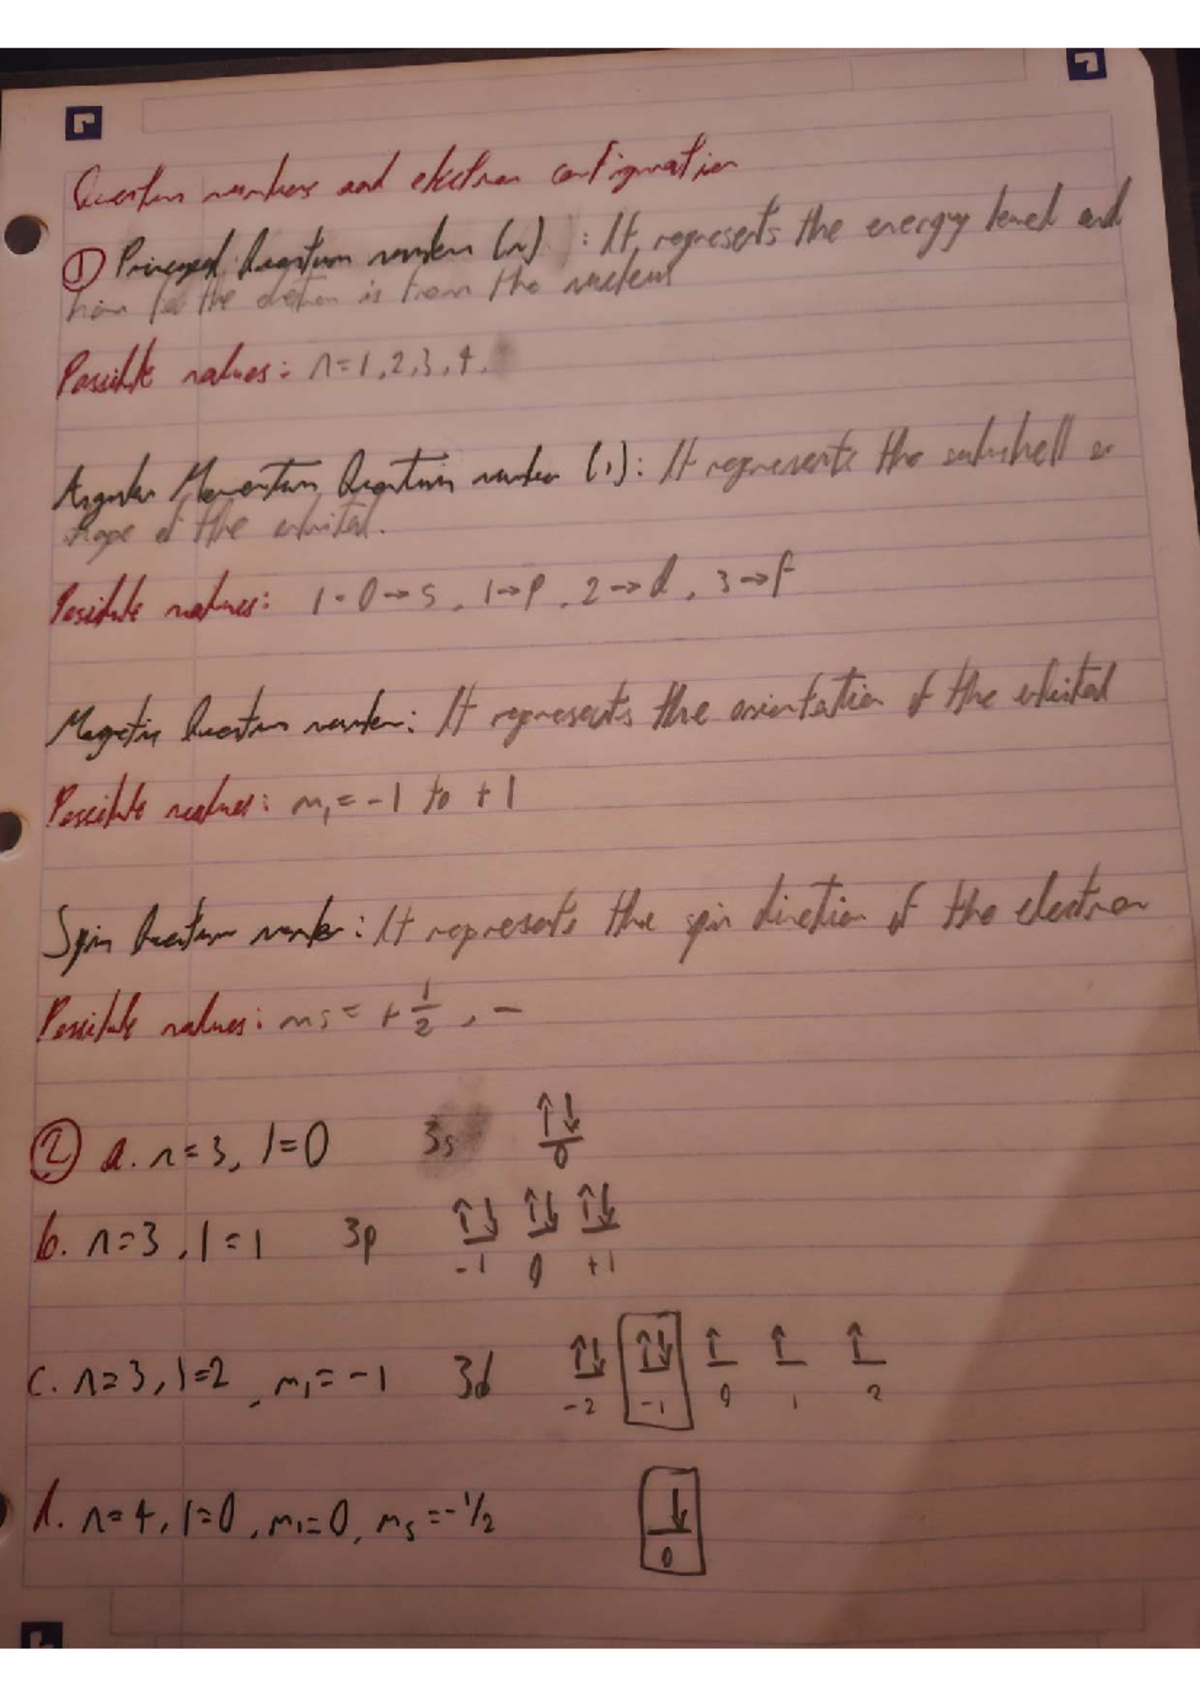 Quantum numbers and electron configuration
① Principal Quantum number (n) : It represents the energy level and
how far the electron is from the nucleus
Possible values: n=1,2,3,4.
Angular Momentum Quantum number (l): It represents the subshell or
shape of the orbital.
Possible values: l=0→s, 1→p, 2→d, 3→f
Magnetic Quantum number: It represents the orientation of the orbital
Possible values: ml = -l to +l
Spin Quantum number: It represents the spin direction of the electron
Possible values: ms = +1/2, -
② a. n=3, l=0 3s ↑↓
0
b. n=3, l=1 3p ↑↓ ↑↓ ↑↓
-1 0 +1
c. n=3, l=2, ml=-1 3d ↑↓ ↑↓ ↑ ↑ ↑
-2 -1 0 1 2
d. n=4, l=0, ml=0, ms=-1/2 ↓
0